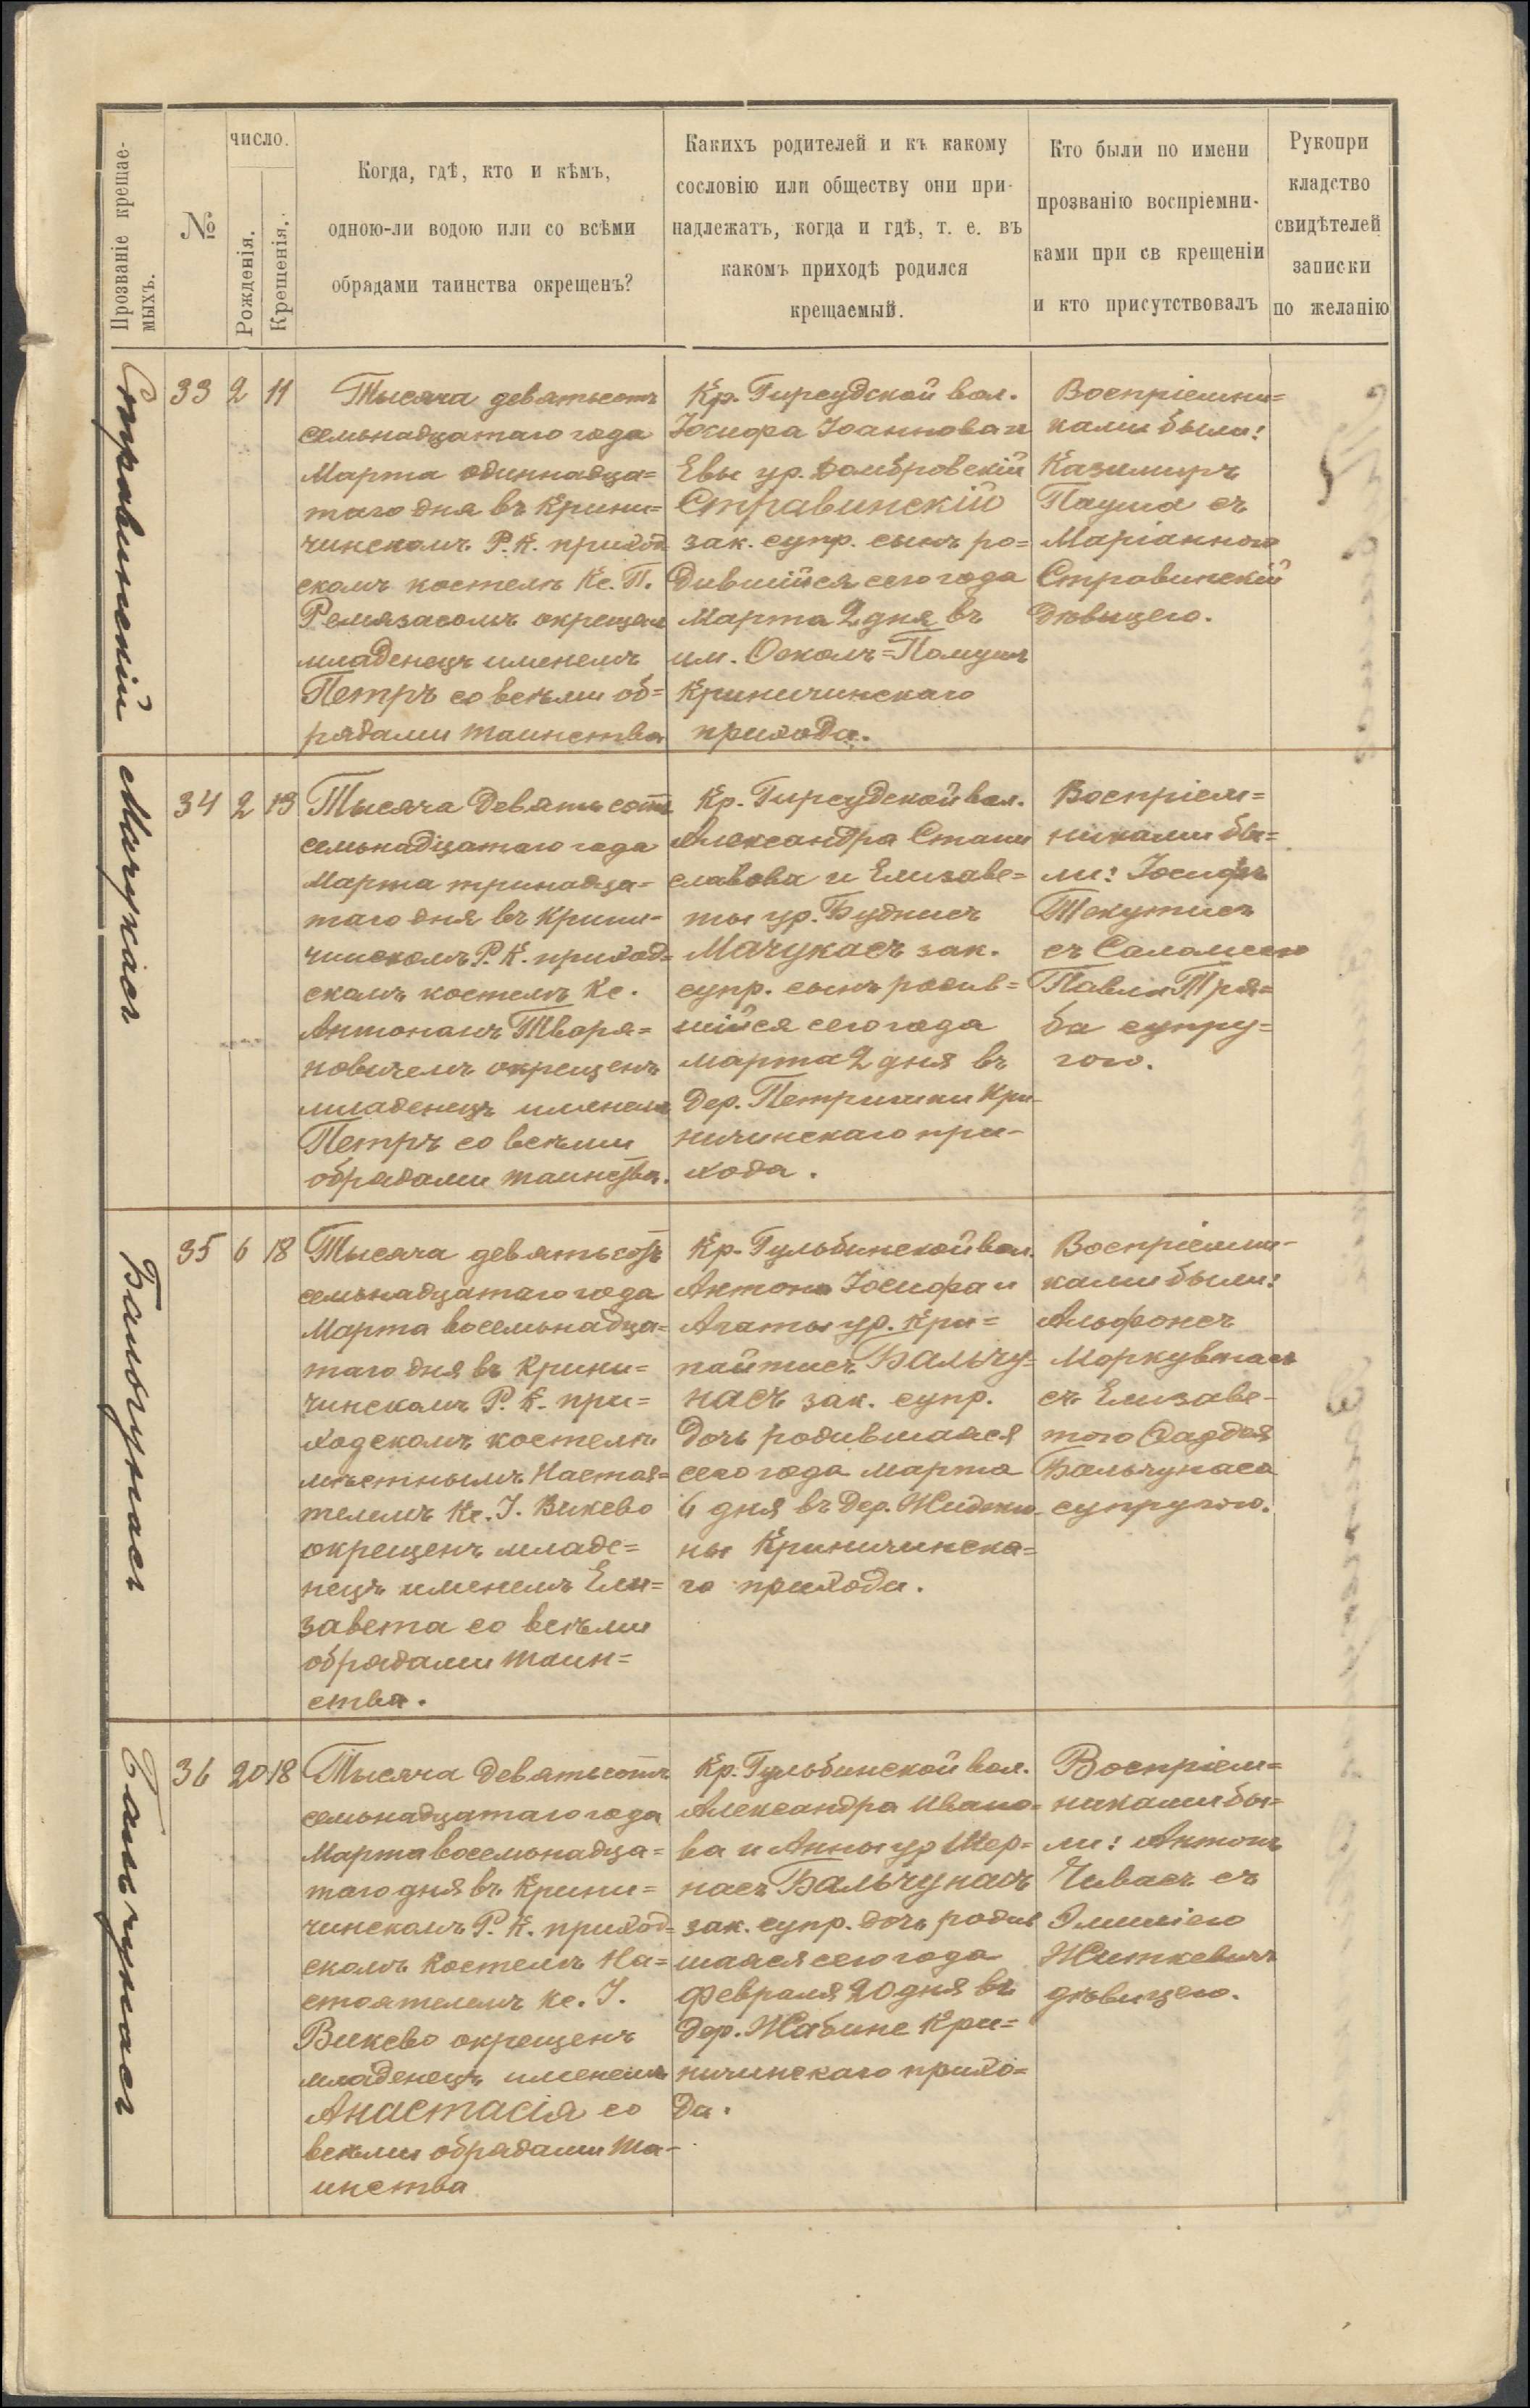 Прозваніе крещае-
мыхъ.
№
число.
Рожденія.
Крещенія.
Когда, гдѣ, кто и кѣмъ,
одною-ли водою или со всѣми
обрядами таинства окрещенъ?
Какихъ родителей и къ какому
сословію или обществу они при-
надлежатъ, когда и гдѣ, т. е. въ
какомъ приходѣ родился
крещаемый.
Кто были по имени
прозванію воспріемни-
ками при св крещеніи
и кто присутствовалъ
Рукопри
кладство
свидѣтелей
записки
по желанію
Стравинскій
33 2 11
Тысяча девятьсотъ
семьнадцатаго года
Марта одиннадца=
таго дня въ Крини=
чинскомъ Р. К. приход
скомъ костелѣ Кс. П.
Ремязасомъ окрещен
младенецъ именемъ
Петръ со всѣми об=
рядами таинства
Кр. Гирсудской вол.
Іосифа Іоаннова и
Евы ур. Домбровскій
Стравинскій
зак. супр. сынъ ро=
дившійся сего года
Марта 2 дня въ
им. Осколъ=Помушъ
Криничинскаго
прихода.
Воспріемни=
ками были:
Казимиръ
Пауша съ
Маріанною
Стравинскій
дѣвицею.
Мачукасъ
34 2 13
Тысяча девятьсотъ
семьнадцатаго года
Марта тринадца=
таго дня въ Крини-
чинскомъ Р. К. приход=
скомъ костелѣ Кс.
Антономъ Творя=
новичемъ окрещенъ
младенецъ именем
Петръ со всѣми
обрядами таинства.
Кр. Гирсудской вол.
Александра Стани
славова и Елизаве=
ты ур. Буднисъ
Мачукасъ зак.
супр. сынъ родив=
шійся сего года
марта 2 дня въ
дер. Петришки Кри-
ничинскаго при-
хода.
Воспріем=
никами бы=
ли: Іосифъ
Текутисъ
съ Саломеею
Павла Тря=
ба супру=
гою.
Бальчунасъ
35 6 18
Тысяча девятьсотъ
семьнадцатаго года
Марта восемьнадца=
таго дня въ Крини=
чинскомъ Р. К. при=
ходскомъ костелѣ
мѣстнымъ Настоя=
телемъ Кс. І. Виксво
окрещенъ младе=
нецъ именемъ Ели=
завета со всѣми
обрядами таин=
ства.
Кр. Гульбинской вол.
Антона Іосифа и
Агаты ур. Кри=
пайтисъ Бальчу-
насъ зак. супр.
дочь родившаяся
сего года марта
6 дня въ дер. Жиджю-
ны Криничинска=
го прихода.
Воспріемни-
ками были:
Альфонсъ
Моркувнасъ
съ Елизаве-
тою Фаддея
Бальчунаса
супругою.
Бальчунасъ
36 20 18
Тысяча девятьсотъ
семьнадцатаго года
Марта восемьнадца=
таго дня въ Крини=
чинскомъ Р. К. приход=
скомъ костелѣ На=
стоятелемъ Кс. І.
Виксво окрещенъ
младенецъ именемъ
Анастасія со
всѣми обрядами та-
инства
Кр. Гульбинской вол.
Александра Ивано=
ва и Анны ур Шер=
насъ Бальчунасъ
зак. супр. дочь родив
шаяся сего года
февраля 20 дня въ
дер. Жабине Кри=
ничинскаго прихо=
да.
Воспріем=
никами бы=
ли: Антонъ
Чивасъ съ
Эмиліею
Житкевичъ
дѣвицею.